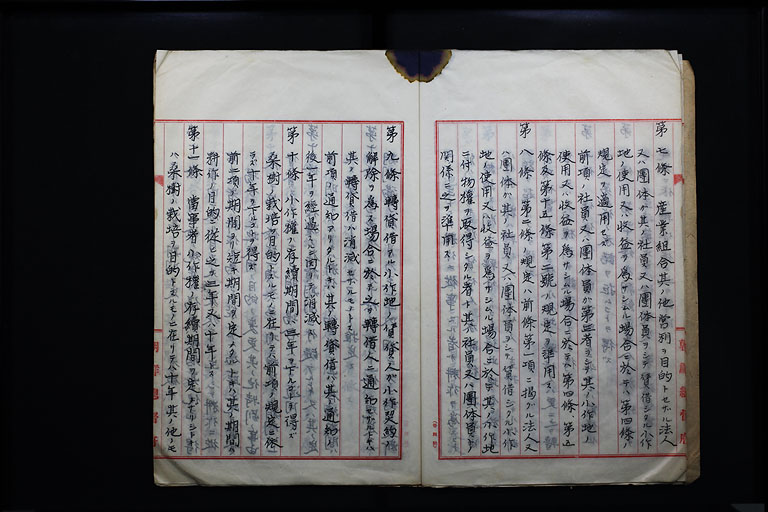 第七條 産業組合其ノ他營利ヲ目的トセザル法人
又ハ團体ガ其ノ社員又ハ團体員ヲシテ賃借シタル小作
地ヲ使用又ハ收益ヲ爲サシムル場合ニ於テハ第四條ノ
規定ヲ適用セズ
前項ノ社員又ハ團体員ガ第三者ヲシテ其ノ小作地ノ
使用又ハ收益ヲ爲サシムル場合ニ於テハ第四條、第五
條及第十五條第二號ノ規定ヲ準用ス
第八條 第二條ノ規定ハ前條第一項ニ掲グル法人又
ハ團体ガ其ノ社員又ハ團体員ヲシテ賃借シタル小作
地ノ使用又ハ收益ヲ爲サシムル場合ニ於テ其ノ小作地
ニ付物權ヲ取得シタル者ト其ノ社員又ハ團体員トノ
關係ニ之ヲ準用ス
第九條 轉貸借アル小作地ノ賃貸人ガ小作契約
解除ヲ爲ス場合ニ於テ之ヲ轉借人ニ通知セザルトキハ
其ノ轉貸借ハ消滅セザルモノトス
前項ノ通知アリタルトキハ其ノ轉貸借ハ其ノ通知ノ
後一年ヲ經過スルニ因リテ消滅ス
第十條 小作權ノ存續期間ハ三年ヲ下ルコトヲ得ズ
桑樹ノ栽培ヲ目的トスルモノニ在リテハ前項ノ規定ニ依
ラズ十年ヲ下ルコトヲ得ズ
前二項ノ期間ヨリ短キ期間ヲ定メタルトキハ其ノ期間ハ
耕作ノ目的ニ從ヒ之ヲ三年又ハ十年トス
第十一條 當事者ガ小作權ノ存續期間ヲ定メザリシトキ
ハ桑樹ノ栽培ヲ目的トスルモノニ在リテハ十年其ノ他ノモ